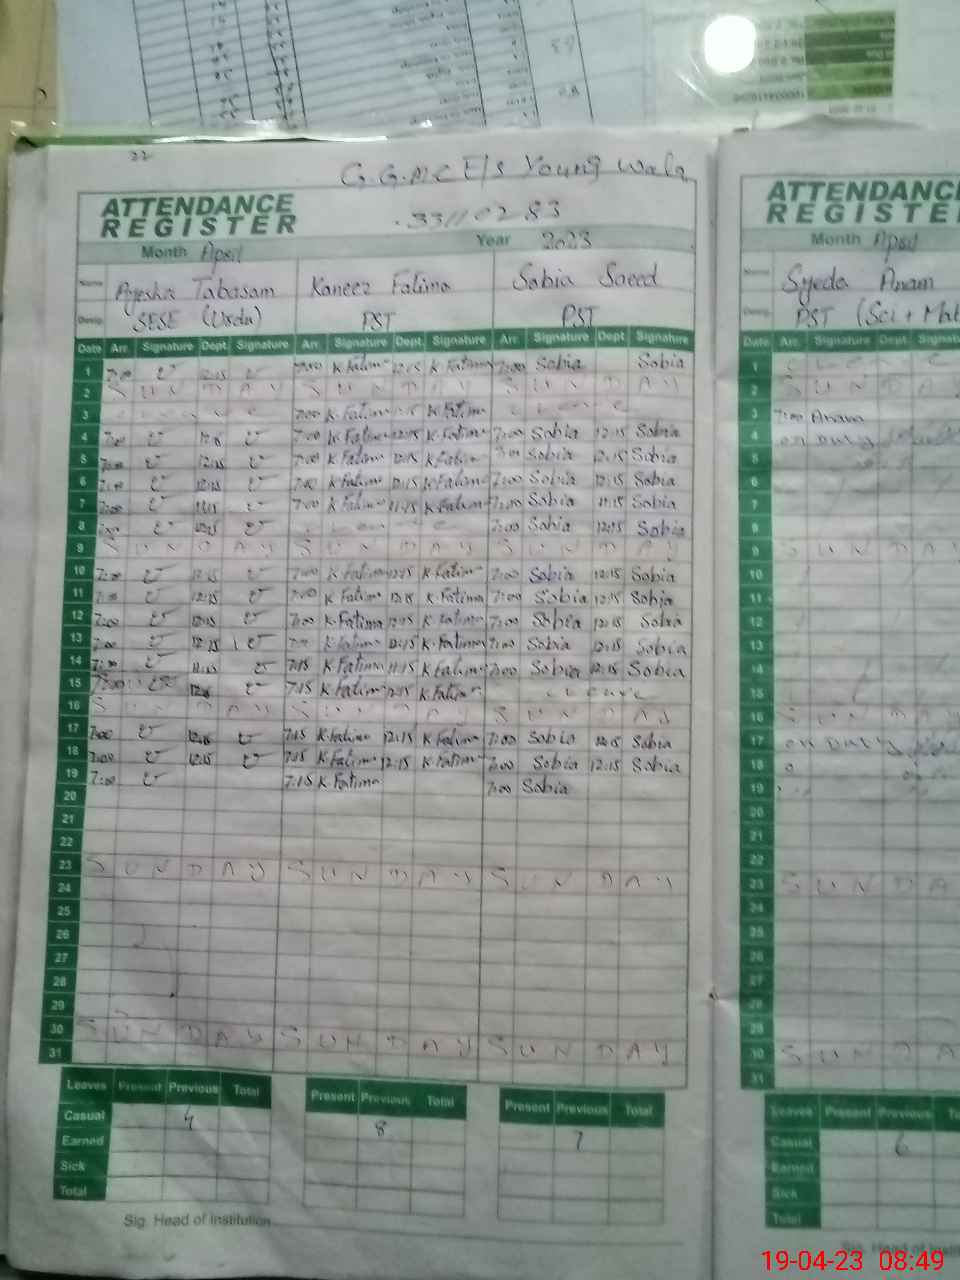 22
G.G.M.C E/S Young Wala
ATTENDANCE
REGISTER
.33110283
Month April Year 2023
Name Ayesha Tabasam Kaneez Fatima Sobia Saeed
Desig. SESE (Urdu) PST PST
Date Arr. Signature Dept. Signature Arr. Signature Dept. Signature Arr. Signature Dept Signature
1 7:00 12:15 7:00 K.Fatima 12:15 K Fatima 7:00 Sobia Sobia
2 SUNDAY SUNDAY SUNDAY
3 Leave 7:00 K.Fatima K.Fatima Leave
4 7:00 12:15 7:00 K Fatima 12:15 K.Fatima 7:00 Sobia 12:15 Sobia
5 7:00 12:15 7:00 K.Fatima 12:15 K.Fatima 7:00 Sobia 12:15 Sobia
6 7:00 12:15 7:00 K.Fatima 12:15 K.Fatima 7:00 Sobia 12:15 Sobia
7 7:00 11:15 7:00 K.Fatima 11:15 K.Fatima 7:00 Sobia 11:15 Sobia
8 7:00 12:15 Leave 7:00 Sobia 12:15 Sobia
9 SUNDAY SUNDAY SUNDAY
10 7:00 12:15 7:00 K Fatima 12:15 K Fatima 7:00 Sobia 12:15 Sobia
11 7:00 12:15 7:00 K Fatima 12:15 K Fatima 7:00 Sobia 12:15 Sobia
12 7:00 12:15 7:00 K.Fatima 12:15 K Fatima 7:00 Sobia 12:15 Sobia
13 7:00 12:15 K.Fatima 12:15 K.Fatima 7:00 Sobia 12:15 Sobia
14 7:00 11:15 7:15 K.Fatima 11:15 K.Fatima 7:00 Sobia 12:15 Sobia
15 7:00 12:15 7:15 K.Fatima 12:15 K.Fatima Leave
16 SUNDAY SUNDAY SUNDAY
17 7:00 12:15 7:15 K Fatima 12:15 K Fatima 7:00 Sobia 12:15 Sobia
18 7:00 12:15 7:15 K.Fatima 12:15 K Fatima 7:00 Sobia 12:15 Sobia
19 7:00 7:15 K.Fatima 7:00 Sobia
20
21
22
23 SUNDAY SUNDAY SUNDAY
24
25
26
27
28
29
30 SUNDAY SUNDAY SUNDAY
31
Leaves Present Previous Total Present Previous Total Present Previous Total
Casual 4 8 7
Earned
Sick
Total
Sig. Head of Institution
ATTENDANCE
REGISTER
Month April
Name Syeda Anam
Desig. PST (Sci + Mat
Date Arr. Signature Dept. Signatur
1 Leave
2 SUNDA
3 7:00 Anam
4 on duty
5
6
7
8
9 SUNDA
10
11
12
13
14
15
16 SUNDA
17 on duty
18
19
20
21
22
23 SUNDA
24
25
26
27
28
29
30 SUNDA
31
Leaves Present Previous To
Casual 6
Earned
Sick
Total
Sig. Head of Institu
19-04-23 08:49